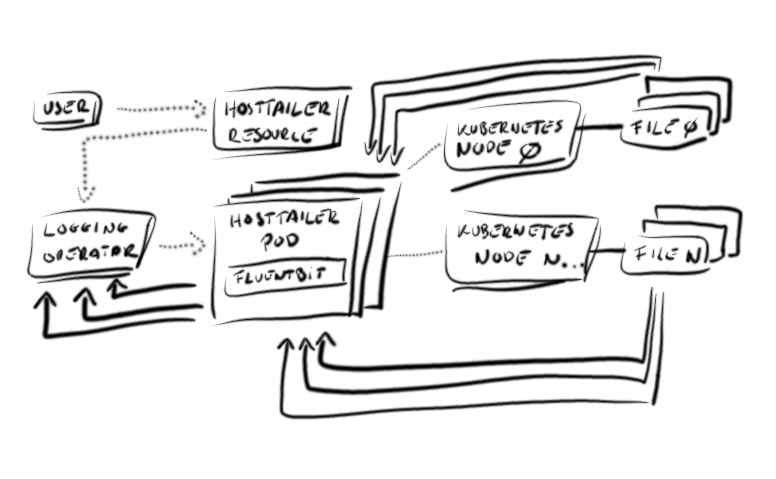 USER
HOSTTAILER
RESOURCE
KUBERNETES
NODE 0
FILE 0
LOGGING
OPERATOR
HOSTTAILER
POD
FLUENTBIT
KUBERNETES
NODE N...
FILE N